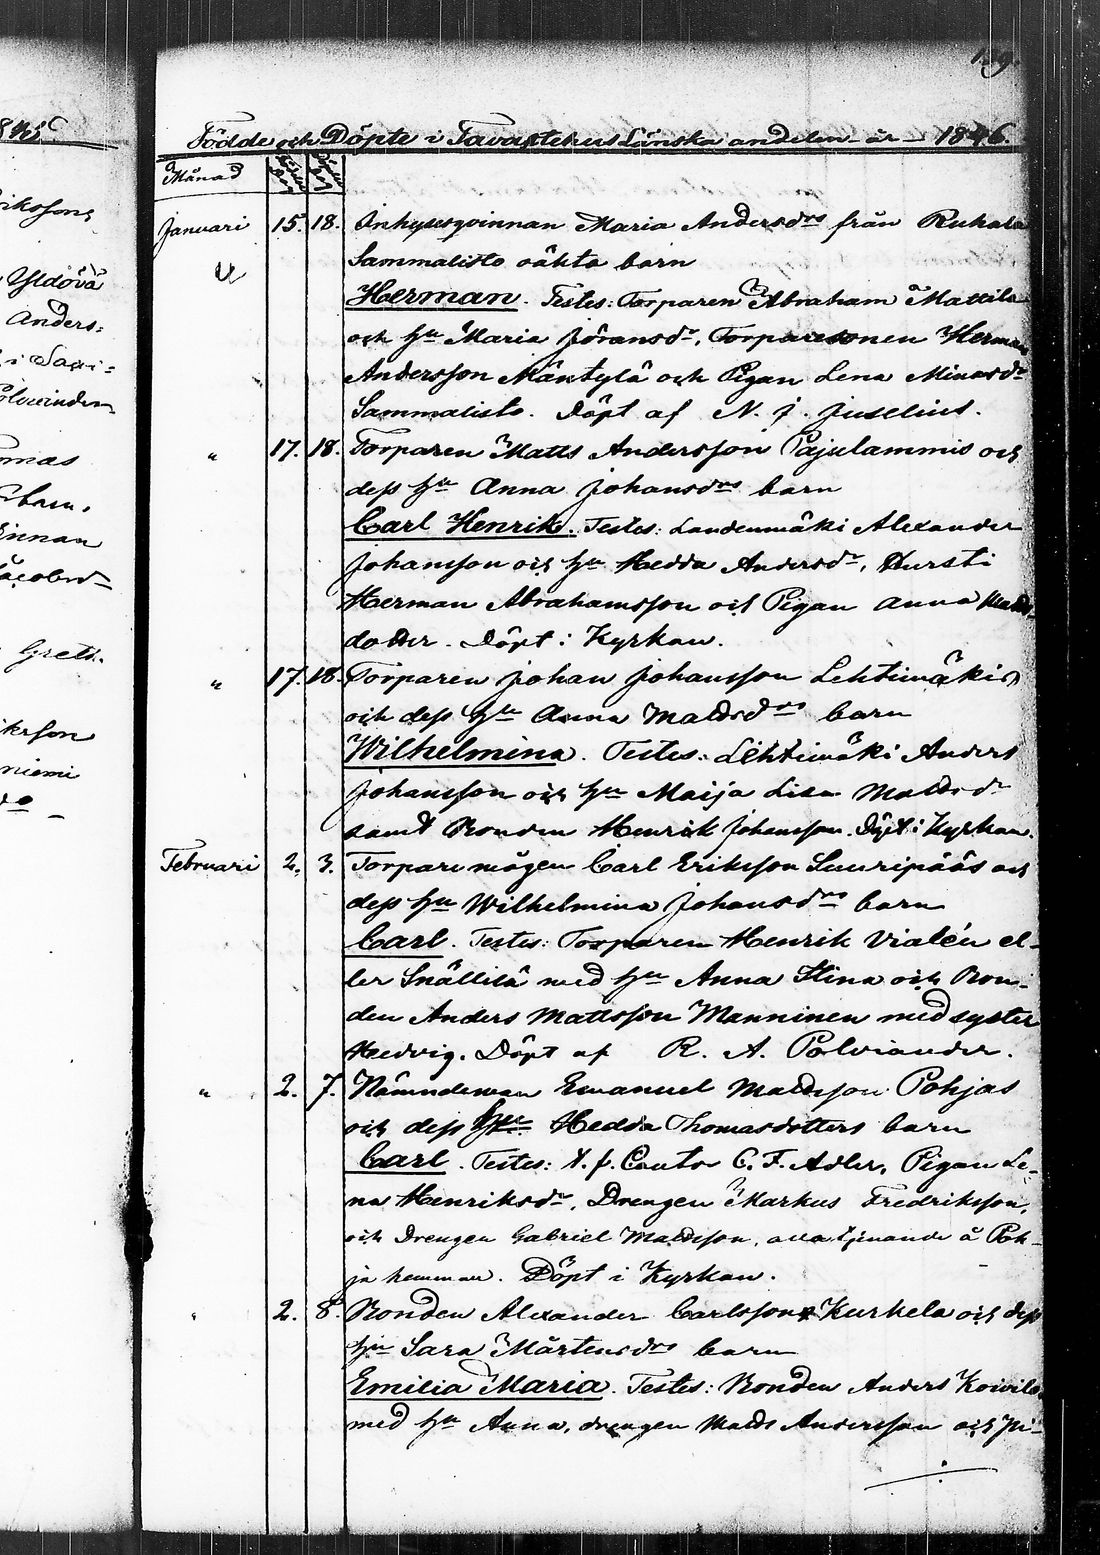 159.
Födde och Döpte i Tavastehus Länska andelen år 1846.
Månad
Januari 15. 18. Inhysesqvinnan Maria Andersdrs från Rukala
Sammalisto oäkta barn
Herman. Testes: Torparen Abraham Mattila
och hu Maria Jöransdr, Torparesonen Herman
Andersson Mäntylä och Pigan Lena Minasdr
Sammalisto. Döpt af N. J. Juselius.
" 17. 18. Torparen Matts Andersson Pajulammis och
dess hu Anna Johansdrs barn
Carl Henrik. Testes: Landenmäki Alexander
Johansson och hu Hedda Andersdr, Hursti
Herman Abrahamsson och Pigan Anna Matts
dotter. Döpt i Kyrkan.
" 17. 18. Torparen Johan Johansson Lehtimäkis
och dess hu Anna Mattsdrs barn
Wilhelmina. Testes: Lehtimäki Anders
Johansson och hu Maija Lisa Mattsdr
samt Bonden Henrik Johansson. Döpt i Kyrkan.
Februari 2. 3. Torpare mågen Carl Eriksson Suuripääs och
dess hu Wilhelmina Johansdrs barn
Carl. Testes: Torparen Henrik Vialén el-
ler Snällilä med hu Anna Stina och Bon-
den Anders Mattsson Manninen med syster
Hedvig. Döpt af R. A. Polviander.
" 2. 7. Nämndeman Emanuel Mattsson Pohjas
och dess hu Hedda Thomasdotters barn
Carl. Testes: Cantor C. F. Adler, Pigan Le-
na Henriksdr, Drengen Markus Fredriksson,
och Drengen Gabriel Mattsson, alla tjenande å Poh-
ja hemman. Döpt i Kyrkan.
" 2. 8. Bonden Alexander Carlsson Kurkela och dess
hu Sara Mårtensdrs barn
Emilia Maria. Testes: Bonden Anders Koivila
med hu Anna, drengen Matts Andersson och Pi-